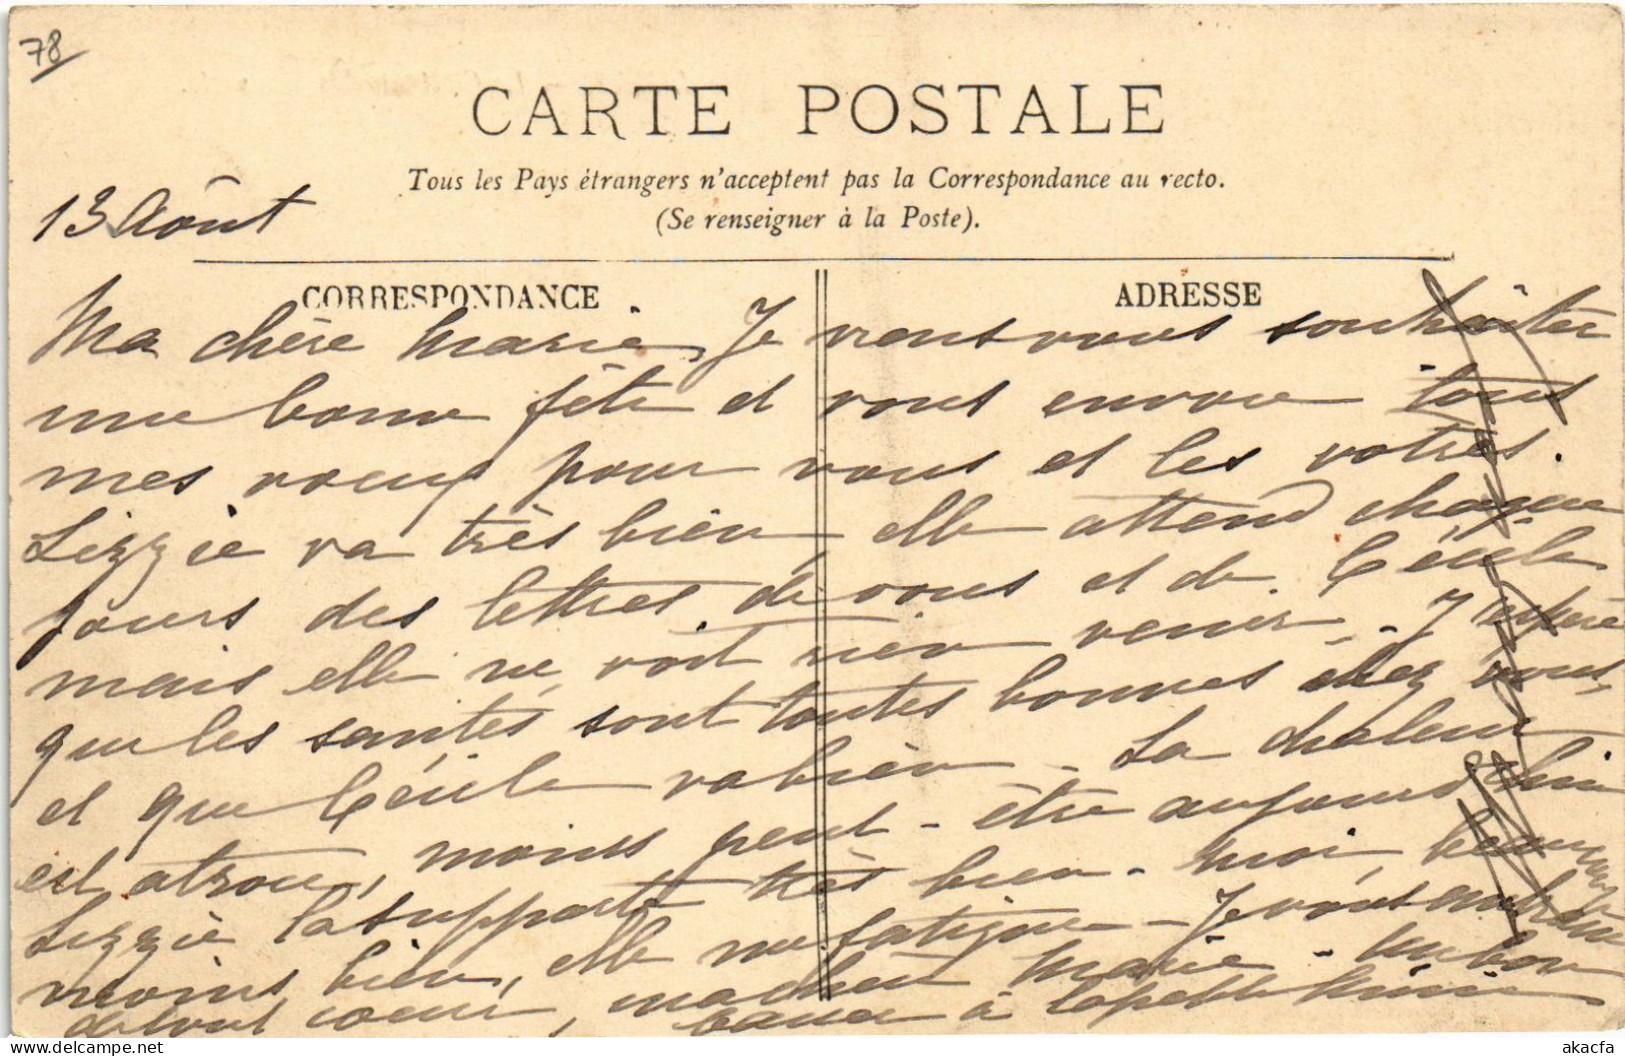 78
CARTE POSTALE
Tous les Pays étrangers n'acceptent pas la Correspondance au recto.
(Se renseigner à la Poste).
13 Août
CORRESPONDANCE
ADRESSE
Ma chère Marie, Je viens vous souhaiter
une bonne fête et vous envoie tous
mes voeux pour vous et les votres.
Lizzie va très bien elle attend chaque
jours des lettres de vous et de Cécile
mais elle ne voit rien venir. - J'espère
que les santés sont toutes bonnes chez vous,
et que Cécile va bien - La chaleur
est atroce, moins peut-être aujourd'hui
Lizzie la supporte très bien - moi, beaucoup
moins bien, elle me fatigue - Je vous embrasse
de tout coeur, ma chère Marie - un bon
à la petite
akacfa